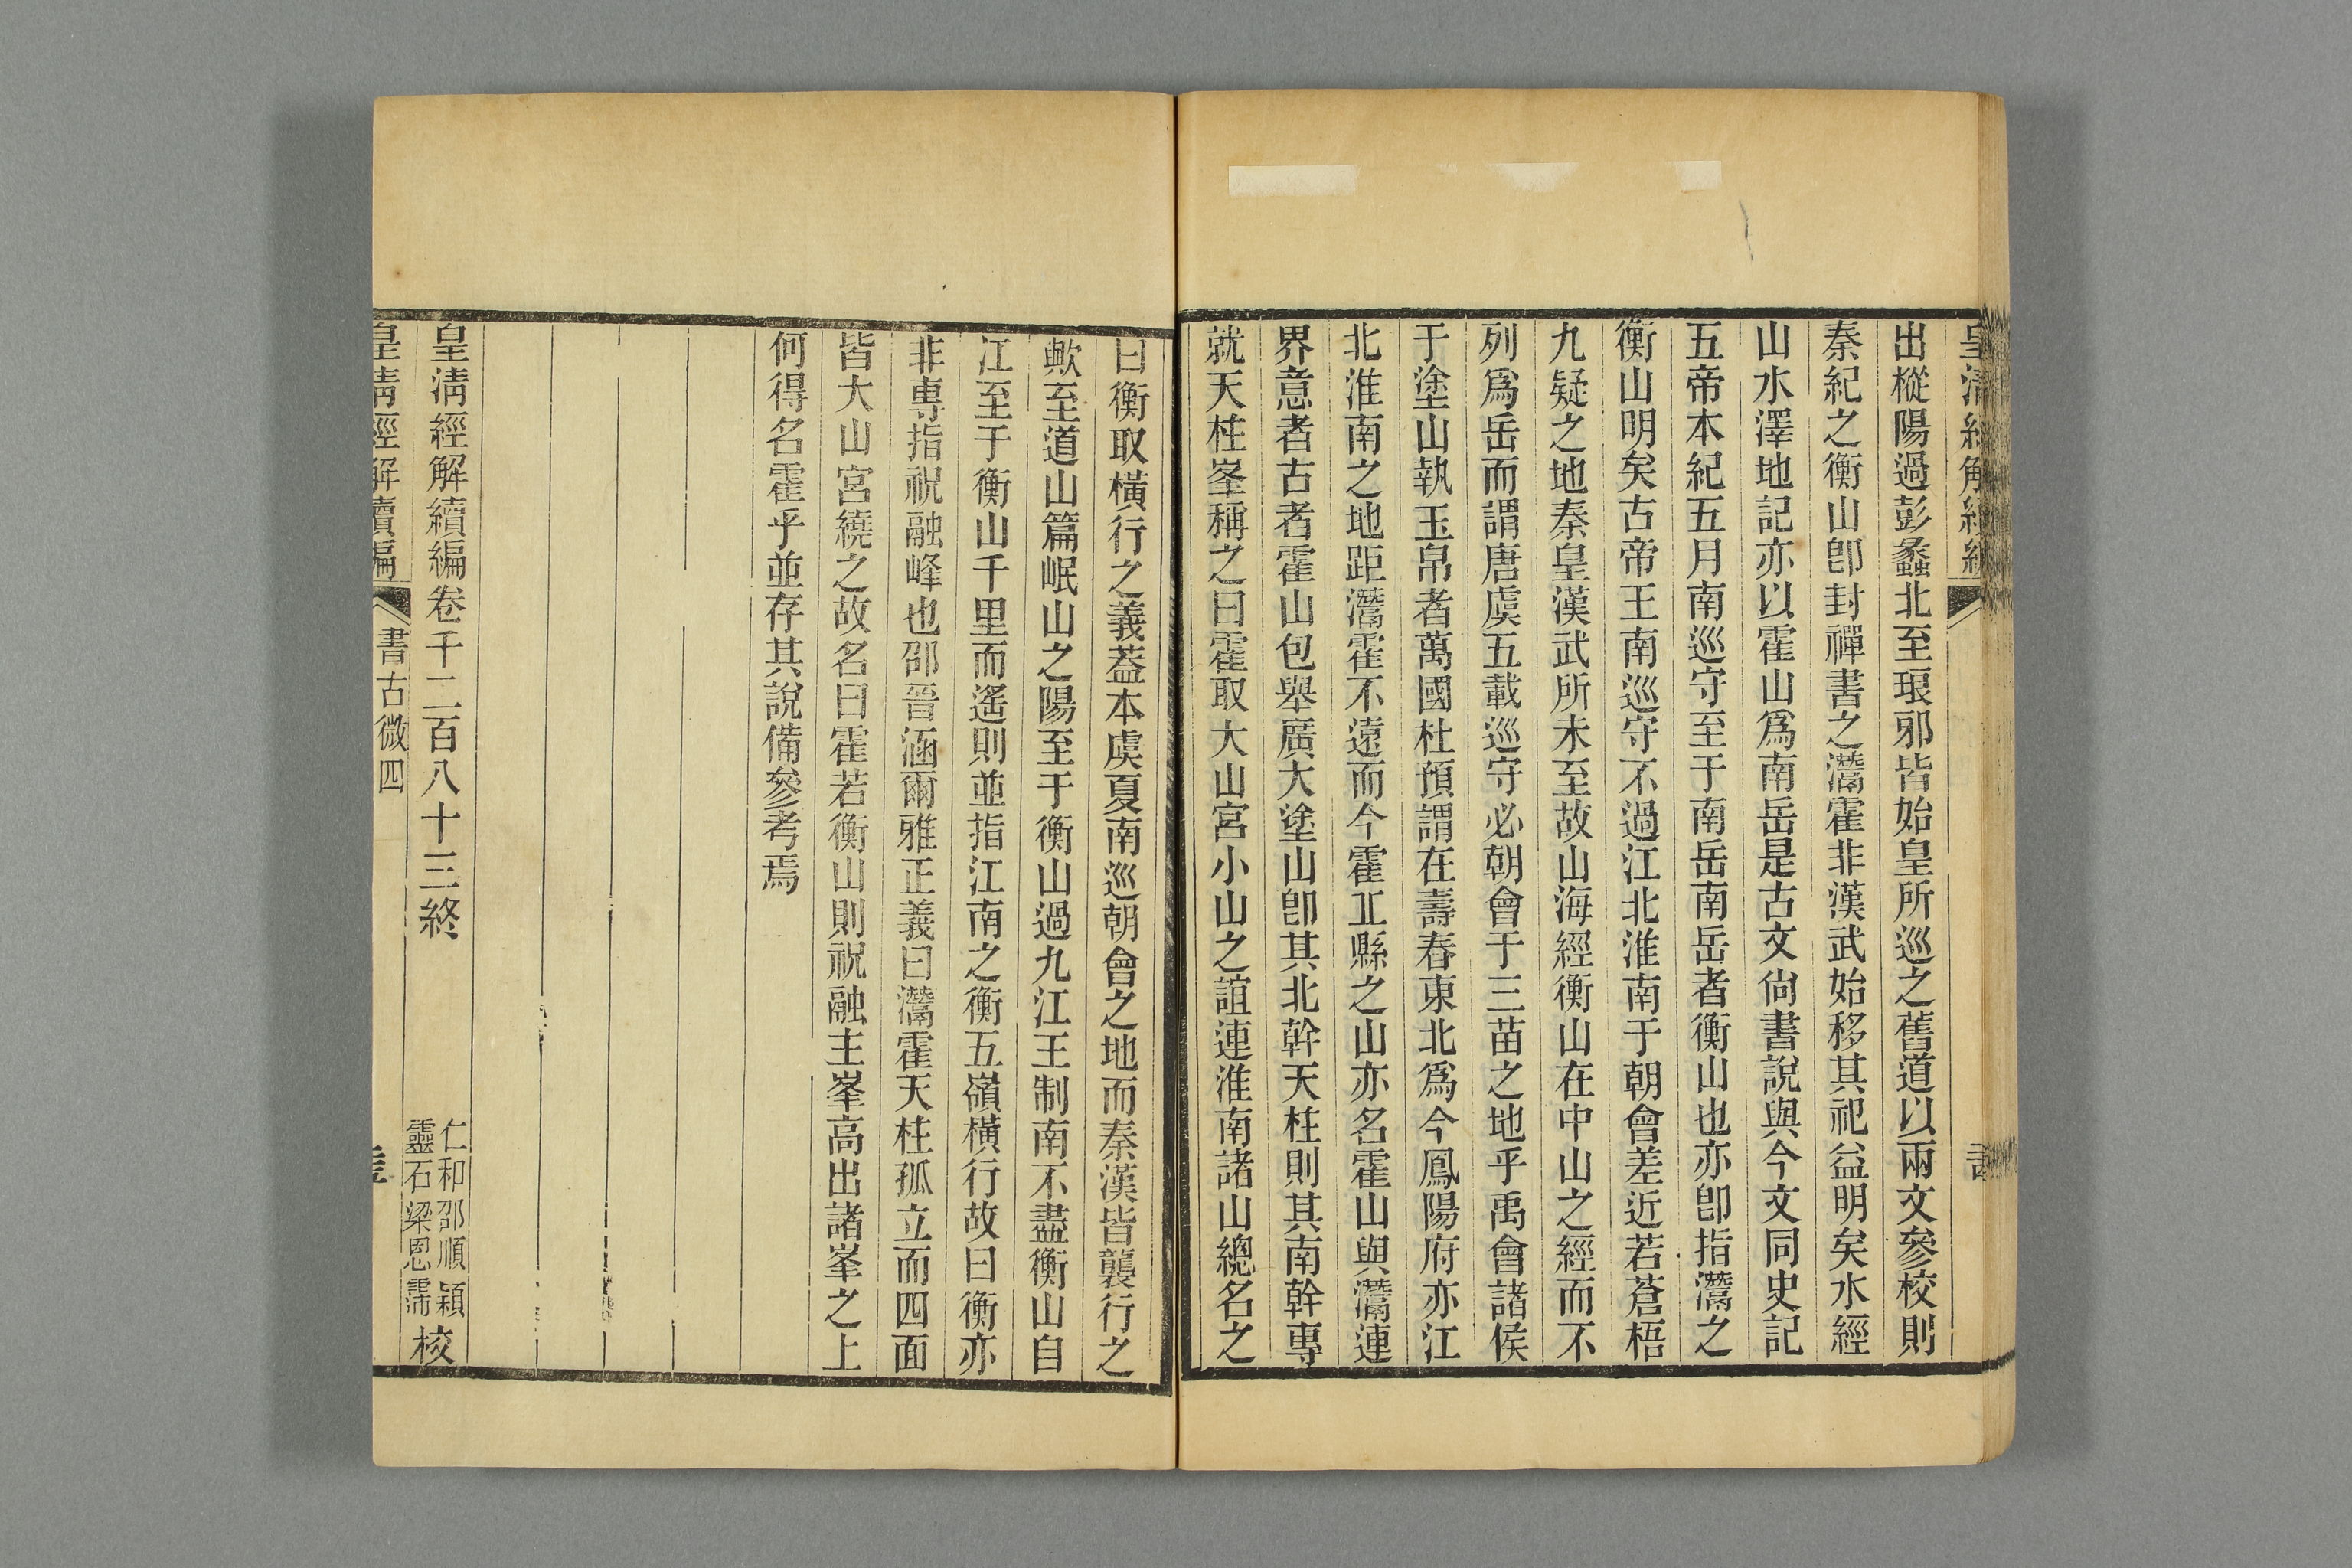 出樅陽過彭蠡北至琅邪皆始皇所巡之舊道以兩文參校則
秦紀之衡山卽封禪書之灊霍非漢武始移其祀益明矣水經
山水澤地記亦以霍山爲南岳是古文尙書說與今文同史記
五帝本紀五月南巡守至于南岳南岳者衡山也亦卽指灊之
衡山明矣古帝王南巡守不過江北淮南于朝會差近若蒼梧
九疑之地秦皇漢武所未至故山海經衡山在中山之經而不
列爲岳而謂唐虞五載巡守必朝會于三苗之地乎禹會諸侯
于塗山執玉帛者萬國杜預謂在壽春東北爲今鳳陽府亦江
北淮南之地距灊霍不遠而今霍丠縣之山亦名霍山與灊連
界意者古者霍山包舉廣大塗山卽其北幹天柱則其南幹專
就天柱峯稱之曰霍取大山宮小山之誼連淮南諸山總名之
曰衡取橫行之義葢本虞夏南巡朝會之地而秦漢皆襲行之
歟至道山篇岷山之陽至于衡山過九江王制南不盡衡山自
江至于衡山千里而遙則並指江南之衡五嶺橫行故曰衡亦
非專指祝融峰也邵晉涵爾雅正義曰灊霍天柱孤立而四面
皆大山宮繞之故名曰霍若衡山則祝融主峯高出諸峯之上
何得名霍乎並存其說備參考焉
皇淸經解續編卷千二百八十三終
仁和邵順穎
靈石梁恩霈
校
皇淸經解續編
書古微四